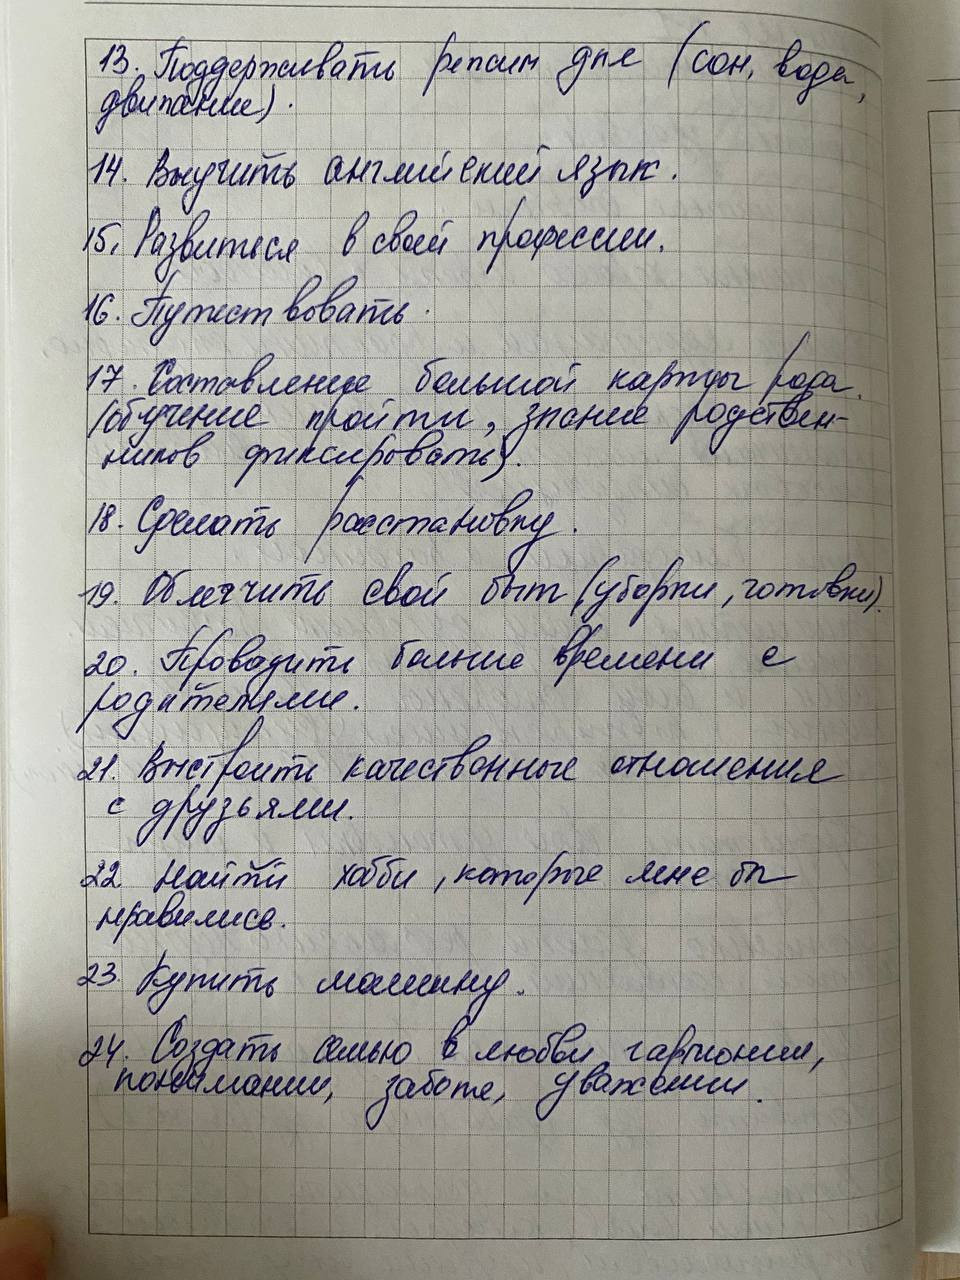 13. Поддерживать режим дня (сон, вода,
движение).
14. Выучить английский язык.
15. Развиться в своей профессии.
16. Путешествовать.
17. Составление большой карты рода
(обучение пройти, знание родствен-
ников фиксировать).
18. Сделать расстановку.
19. Облегчить свой быт (уборки, готовки).
20. Проводить больше времени с
родителями.
21. Выстроить качественные отношения
с друзьями.
22 Найти хобби, которые мне бы
нравились.
23. Купить машину.
24. Создать семью в любви, гармонии,
понимании, заботе, уважении.